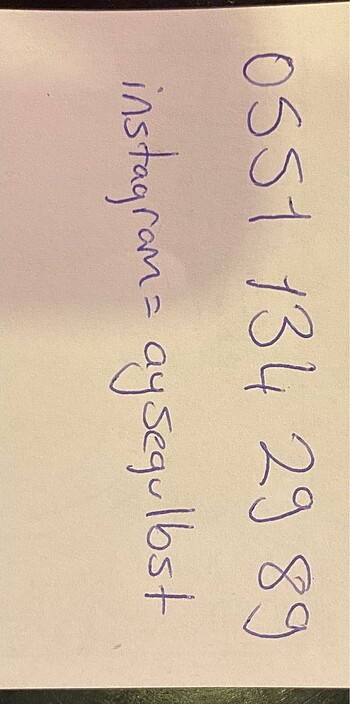 0551 134 29 89
instagram = aysegulbst